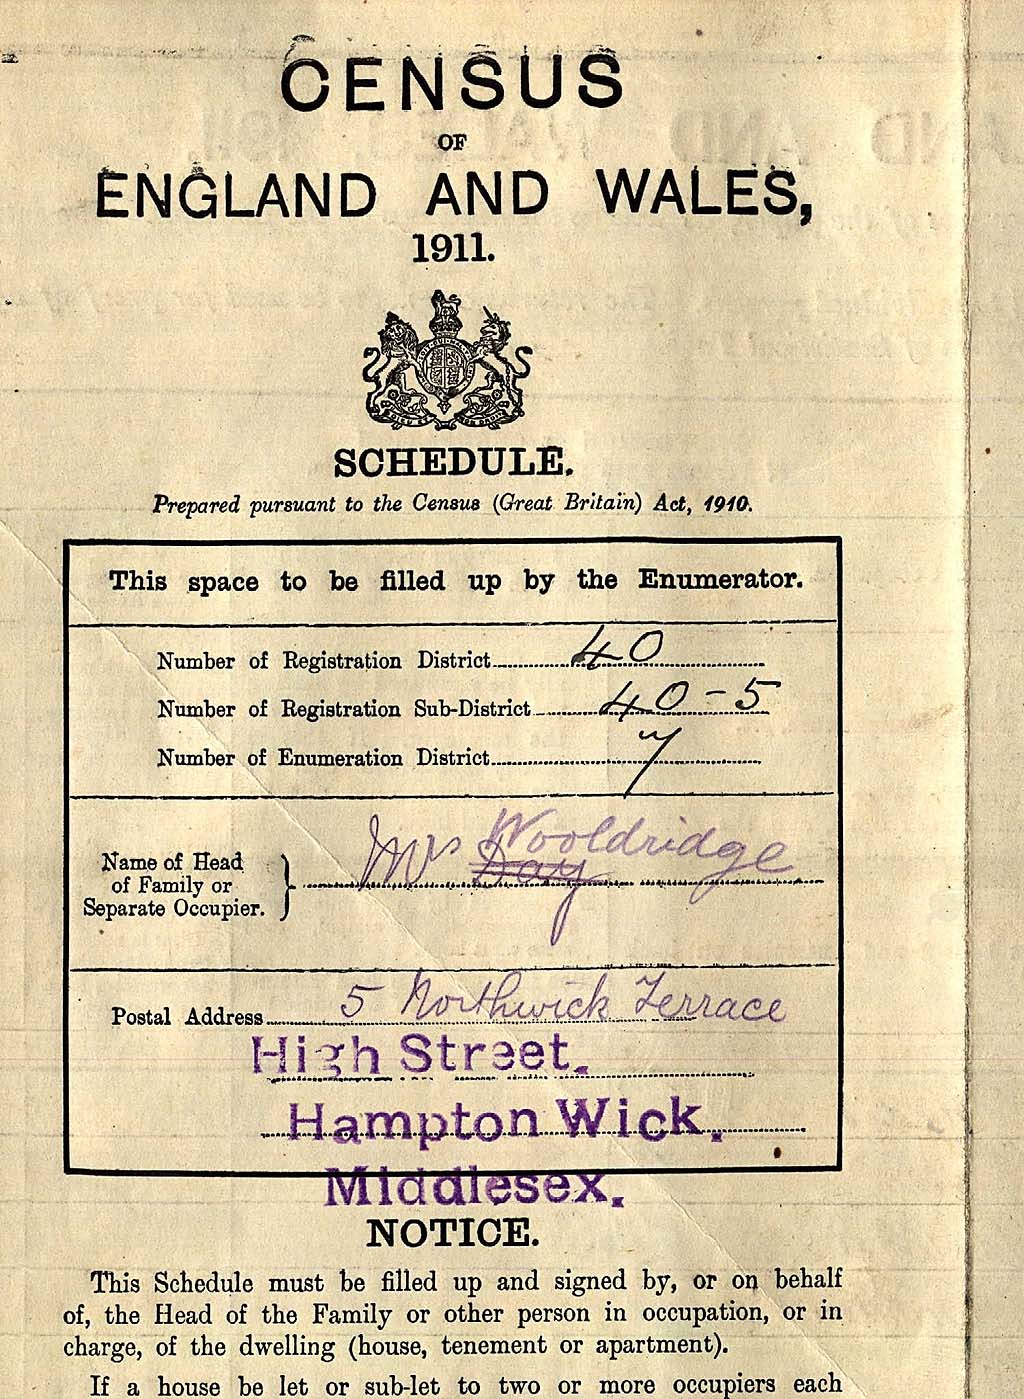 CENSUS
OF
ENGLAND AND WALES,
1911.
SCHEDULE.
Prepared pursuant to the Census (Great Britain) Act, 1910.
This space to be filled up by the Enumerator.
Number of Registration District 40
Number of Registration Sub-District 40-5
Number of Enumeration District 7
Name of Head of Family or Separate Occupier. } Mrs Day Wooldridge
Postal Address 5 Northwick Terrace
High Street.
Hampton Wick.
Middlesex.
NOTICE.
This Schedule must be filled up and signed by, or on behalf
of, the Head of the Family or other person in occupation, or in
charge, of the dwelling (house, tenement or apartment).
If a house be let or sub-let to two or more occupiers each